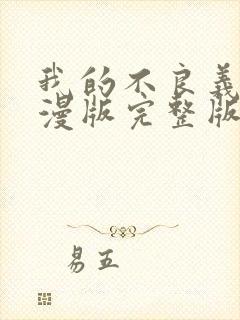 我的不良義
漫版完整版
易五